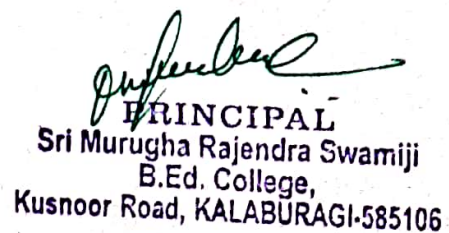 PRINCIPAL
Sri Murugha Rajendra Swamiji
B.Ed. College,
Kusnoor Road, KALABURAGI-585106